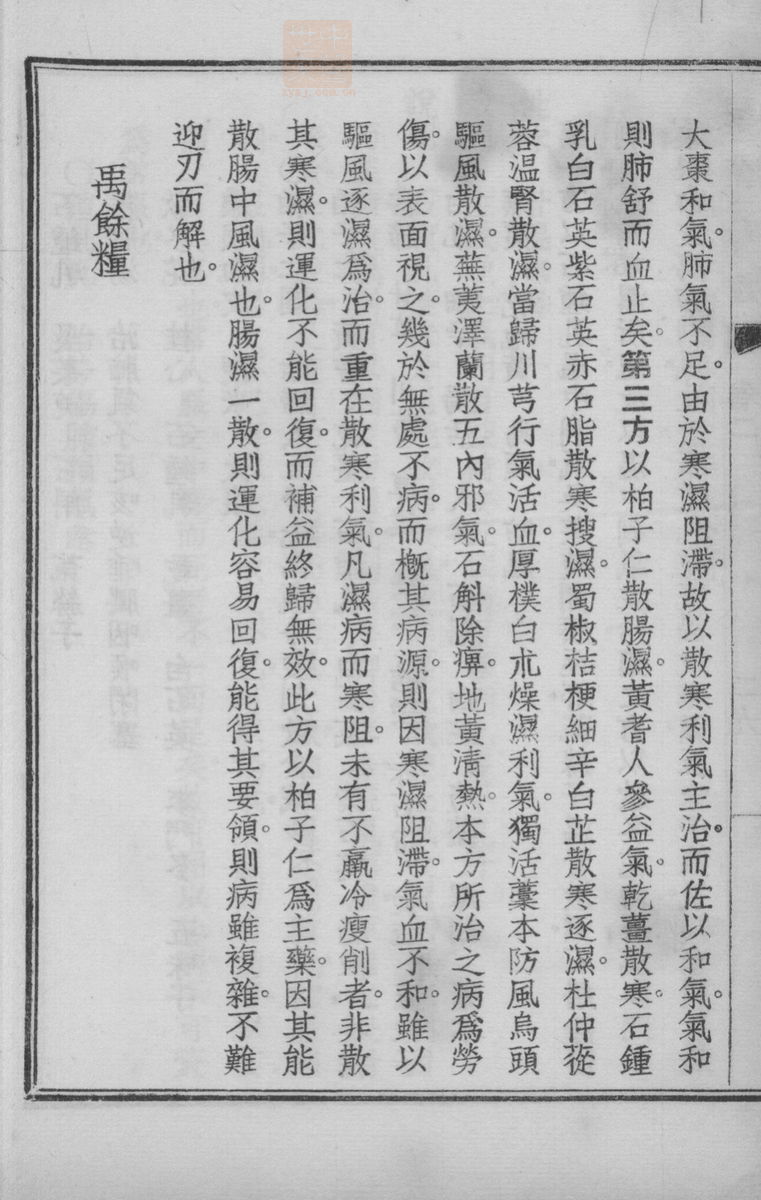 大棗和氣。肺氣不足。由於寒濕阻滯。故以散寒利氣主治。而佐以和氣。氣和
則肺舒而血止矣。第三方以柏子仁散腸濕。黃耆人參益氣。乾薑散寒。石鍾
乳白石英紫石英赤石脂散寒搜濕。蜀椒桔梗細辛白芷散寒逐濕。杜仲蓯
蓉温腎散濕。當歸川芎行氣活血。厚樸白朮燥濕利氣。獨活藁本防風烏頭
驅風散濕。蕪荑澤蘭散五內邪氣。石斛除痹。地黃淸熱。本方所治之病爲勞
傷。以表面視之。幾於無處不病。而槪其病源。則因寒濕阻滯。氣血不和。雖以
驅風逐濕爲治。而重在散寒利氣。凡濕病而寒阻。未有不羸冷瘦削者。非散
其寒濕。則運化不能回復。而補益終歸無效。此方以柏子仁爲主藥。因其能
散腸中風濕也。腸濕一散。則運化容易回復。能得其要領。則病雖複雜。不難
迎刃而解也。
禹餘糧